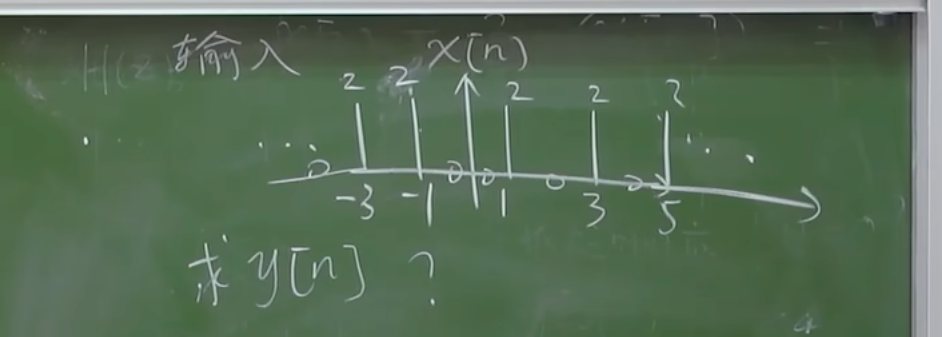 输入 x[n]
2 2 2 2 2
... 0 0 0 0 0 ...
-3 -1 1 3 5
求 y[n] ?